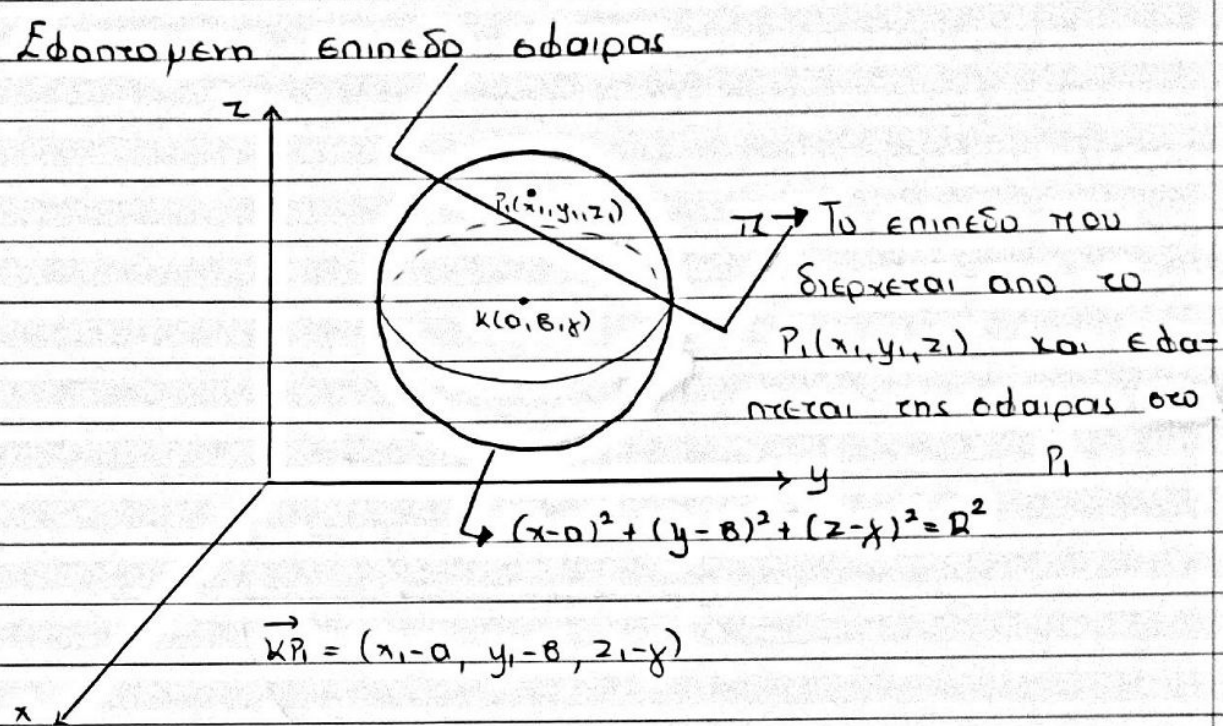 Εφαπτομενη επιπεδο σφαιρας
z
P₁(x₁,y₁,z₁)
π → Το επιπεδο που
διερχεται απο το
K(α,β,γ)
P₁(x₁,y₁,z₁) και εφα-
πτεται της σφαιρας στο
P₁
y
(x-α)² + (y-β)² + (z-γ)² = R²
KP₁ = (x₁-α, y₁-β, z₁-γ)
x